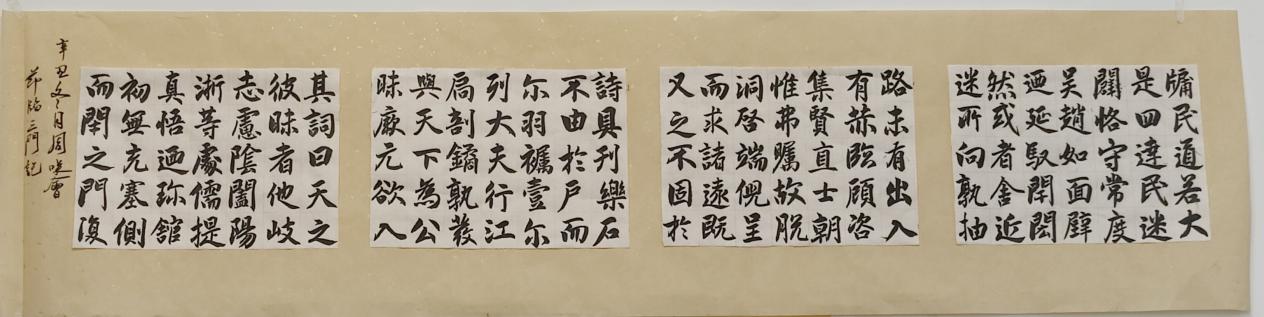 牖民道若大
是四達民迷
闢恪守常度
吴趙如面壁
迺延馭閈閎
然或者舍近
迷所向孰抽
路未有出入
有赫臨顧咨
集賢直士朝
惟弗矚故脱
洞啓端倪呈
而求諸遠既
又之不固於
詩具刊樂石
不由於户而
尔羽襹壹尔
列大夫行江
扃剖鐍孰發
與天下為公
昧厥元欲入
其詞曰天之
彼昧者他岐
志慮陰闔陽
淅等處儒提
真悟迺珎舘
初無充塞側
而閈之門復
辛丑冬月周
節臨三門記